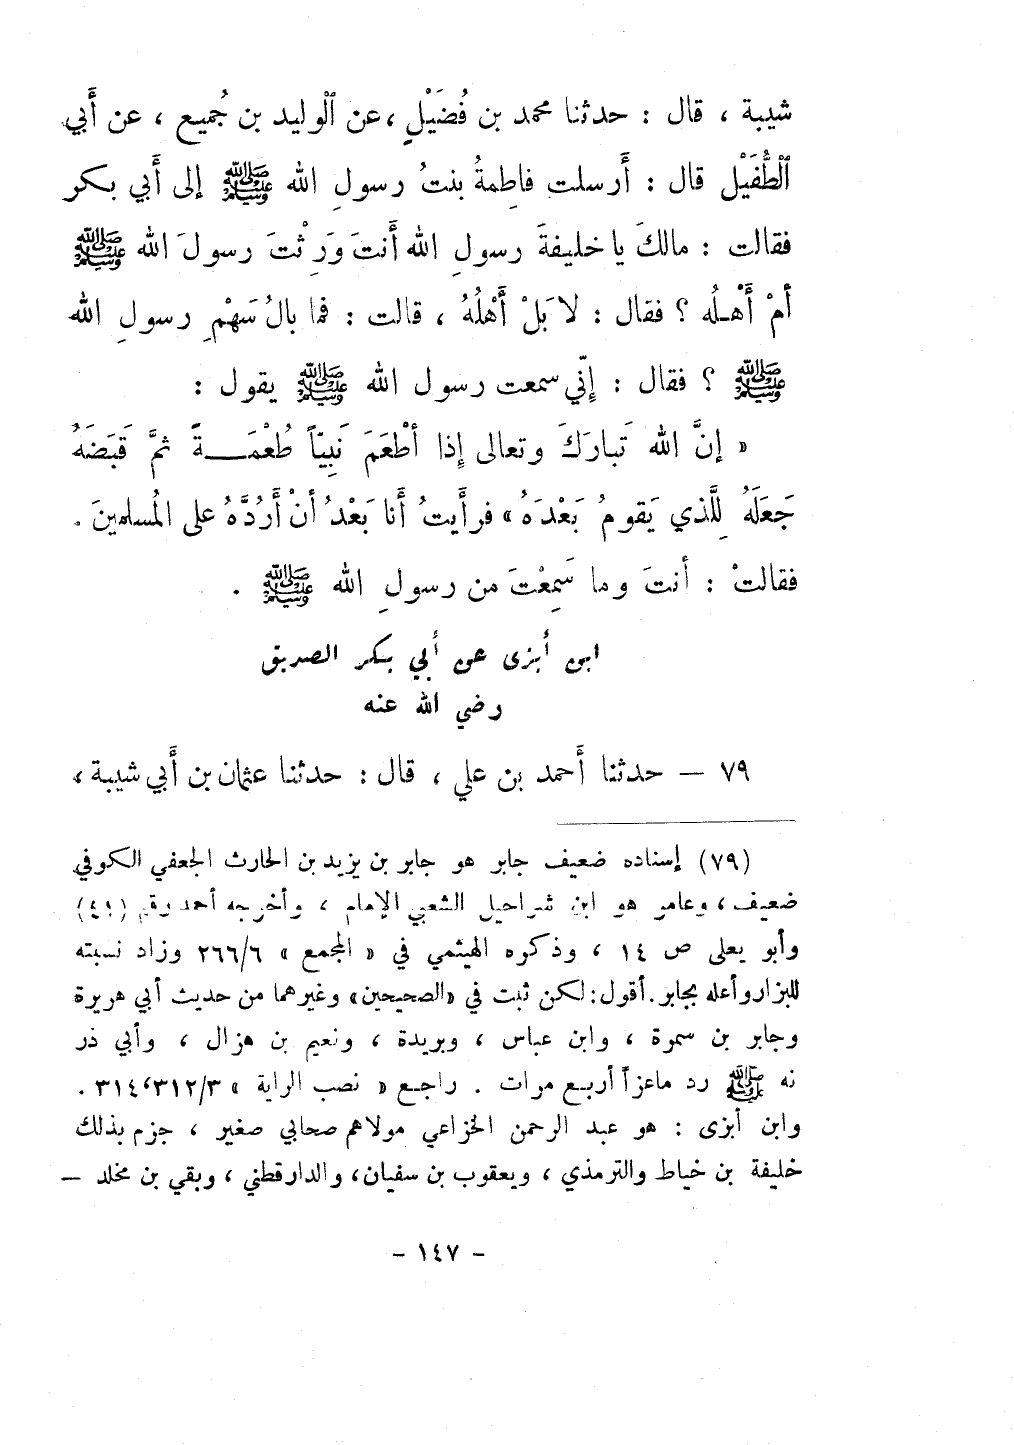 شيبة ، قال : حدثنا محمد بن فُضَيْلٍ ، عن ٱلوليد بن جُميع ، عن أَبي
ٱلطُّفَيْل قال : أَرسلت فاطِمةُ بنتُ رسولِ الله ﷺ إلى أَبي بكر
فقالت : مالكَ يا خليفةَ رسولِ الله أَنتَ وَرِثْتَ رسولَ الله ﷺ
أمْ أَهْـلُه ؟ فقال : لا بَلْ أَهْلُهُ ، قالت : فما بالُ سَهْمِ رسولِ الله
ﷺ ؟ فقال : إنّي سمعت رسول الله ﷺ يقول :
« إنَّ الله تَبارَكَ وتعالى إذا أطْعَمَ نَبِيّاً طُعْمَـــةً ثمَّ قَبَضَهُ
جَعَلَهُ لِلَّذي يَقومُ بَعْدَهُ » فرأَيتُ أَنا بَعْدُ أنْ أَرُدَّهُ على المُسلمينَ .
فقالتْ : أنتَ وما سَمِعْتَ من رسولِ الله ﷺ .
ابن أبزى عن أبي بكر الصديق
رضي الله عنه
٧٩ — حدثنا أَحمد بن علي ، قال : حدثنا عثمان بن أَبي شيبة ،
(٧٩) إسناده ضعيف جابر هو جابر بن يزيد بن الحارث الجعفي الكوفي
ضعيف ، وعامر هو ابن شراحيل الشعبي الإمام ، وأخرجه أحمد رقم (٤١)
وأبو يعلى ص ١٤ ، وذكره الهيثمي في « المجمع » ٢٦٦/٦ وزاد نسبته
للبزار وأعله بجابر . أقول : لكن ثبت في «الصحيحين» وغيرهما من حديث أبي هريرة
وجابر بن سمرة ، وابن عباس ، وبريدة ، ونعيم بن هزال ، وأبي ذر
نه ﷺ رد ماعزاً أربع مرات . راجع « نصب الراية » ٣١٤،٣١٢/٣ .
وابن أبزى : هو عبد الرحمن الخزاعي مولاهم صحابي صغير ، جزم بذلك
خليفة بن خياط والترمذي ، ويعقوب بن سفيان ، والدارقطني ، وبقي بن مخلد —
- ١٤٧ -